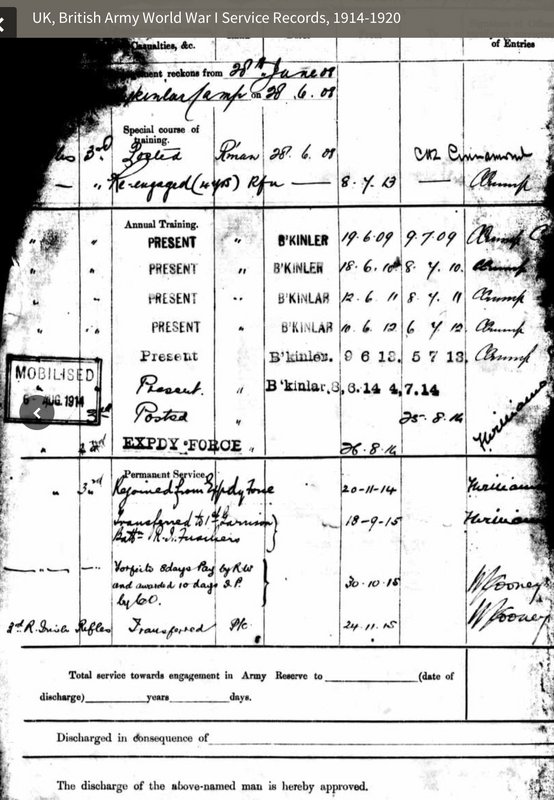 UK, British Army World War I Service Records, 1914-1920
Casualties, &c.
of Entries
reckons from 28th June 08
on 28. 6. 08
Special course of
training.
3rd Posted Rman 28. 6. 08
" Re-engaged (4 yrs) Rfn — 8. 7. 13 —
Annual Training.
" " PRESENT " B'KINLER 19.6.09 9.7.09
" " PRESENT " B'KINLER 18.6.10 8.7.10.
" " PRESENT " B'KINLAR 12.6.11 8.7.11
" " PRESENT " B'KINLAR 10.6.12 6 7 12.
Present B'kinler. 9 6 13. 5 7 13.
MOBILISED
AUG. 1914
Present. " B'kinlar,8,6.14 4,7.14
Posted 25.8.14
" EXPDY FORCE " 26.8.14
Permanent Service.
" 3rd Rejoined from Expdy Force 20-11-14
Transferred to 1st Garrison
Battn R.I. Fusiliers 18-9-15
Forfeits 8 days Pay by R.W
and awarded 10 days
by CO. 30.10.15
R. Irish Rifles Transferred Pte 24.11.15
Total service towards engagement in Army Reserve to (date of
discharge) years days.
Discharged in consequence of
The discharge of the above-named man is hereby approved.